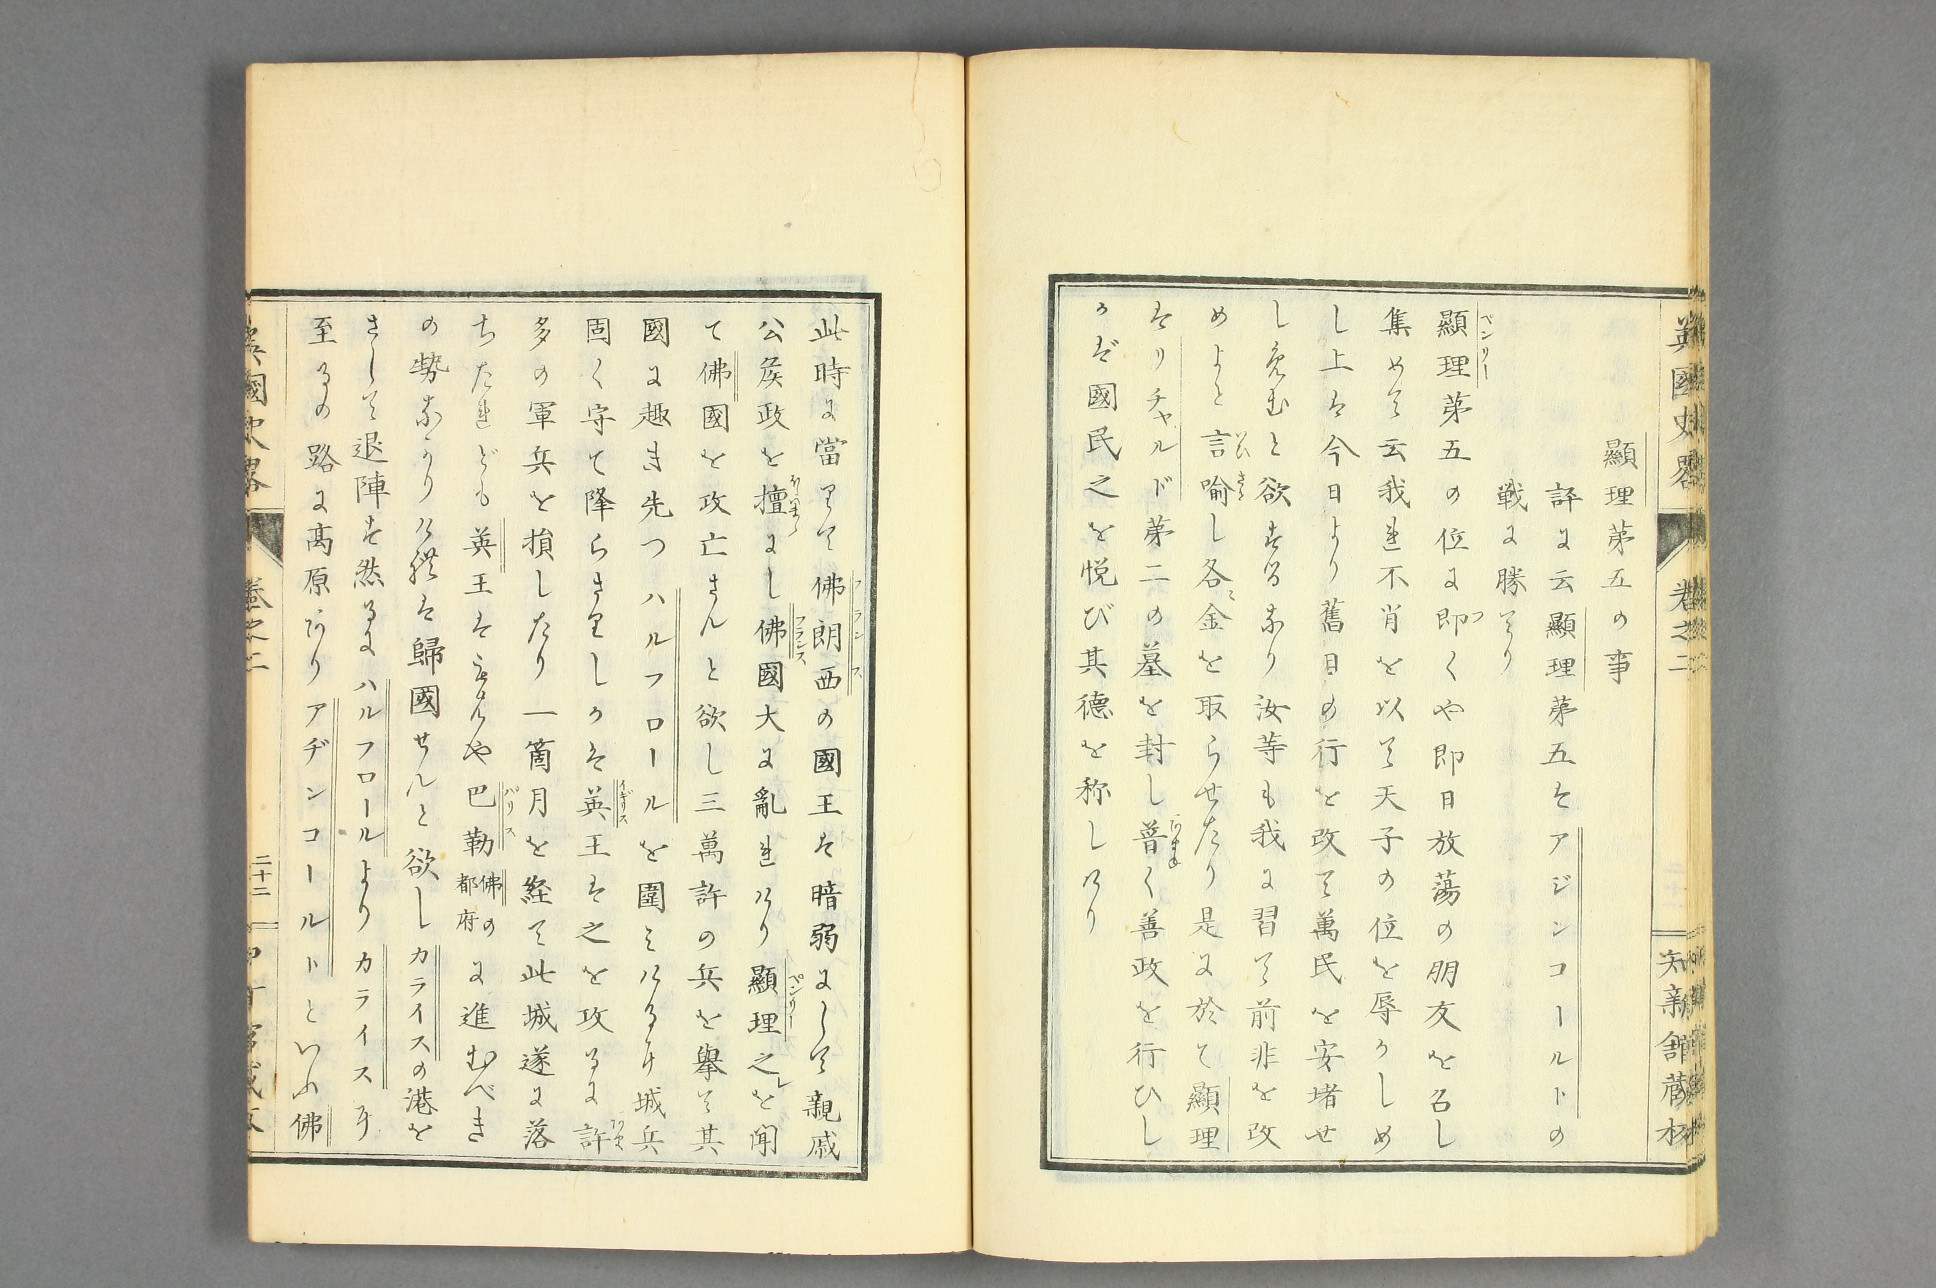 英國史畧 卷之二 知新館藏梓
顯理第五の事
評に云顯理第五はアジンコールトの
戦に勝てり
顯理第五の位に即くや即日放蕩の朋友を召し
集めて云我れ不肖を以て天子の位を辱かしめ
し上は今日より舊日の行を改て萬民を安堵せ
し免むと欲するなり汝等も我に習て前非を改
めよと言喻し各金を取らせたり是に於て顯理
はリチャルド第二の墓を封し普く善政を行ひし
かば國民之を悦び其德を称しけり
此時に當りて佛朗西の國王は暗弱にして親戚
公侯政を擅にし佛國大に亂れけり顯理之を聞
て佛國を攻亡さんと欲し三萬許の兵を擧て其
國に趣き先つハルフロールを圍みける时城兵
固く守て降らさりしかは英王は之を攻るに許
多の軍兵を損したり一箇月を経て此城遂に落
ちたれども英王は
や巴勒佛の都府に進むべき
の勢なかりければ歸國せんと欲しカライスの港を
さして退陣す然るにハルフロールよりカライス
至るの路に高原ありアヂンコールトといふ佛
英國史畧 卷之二 二十二